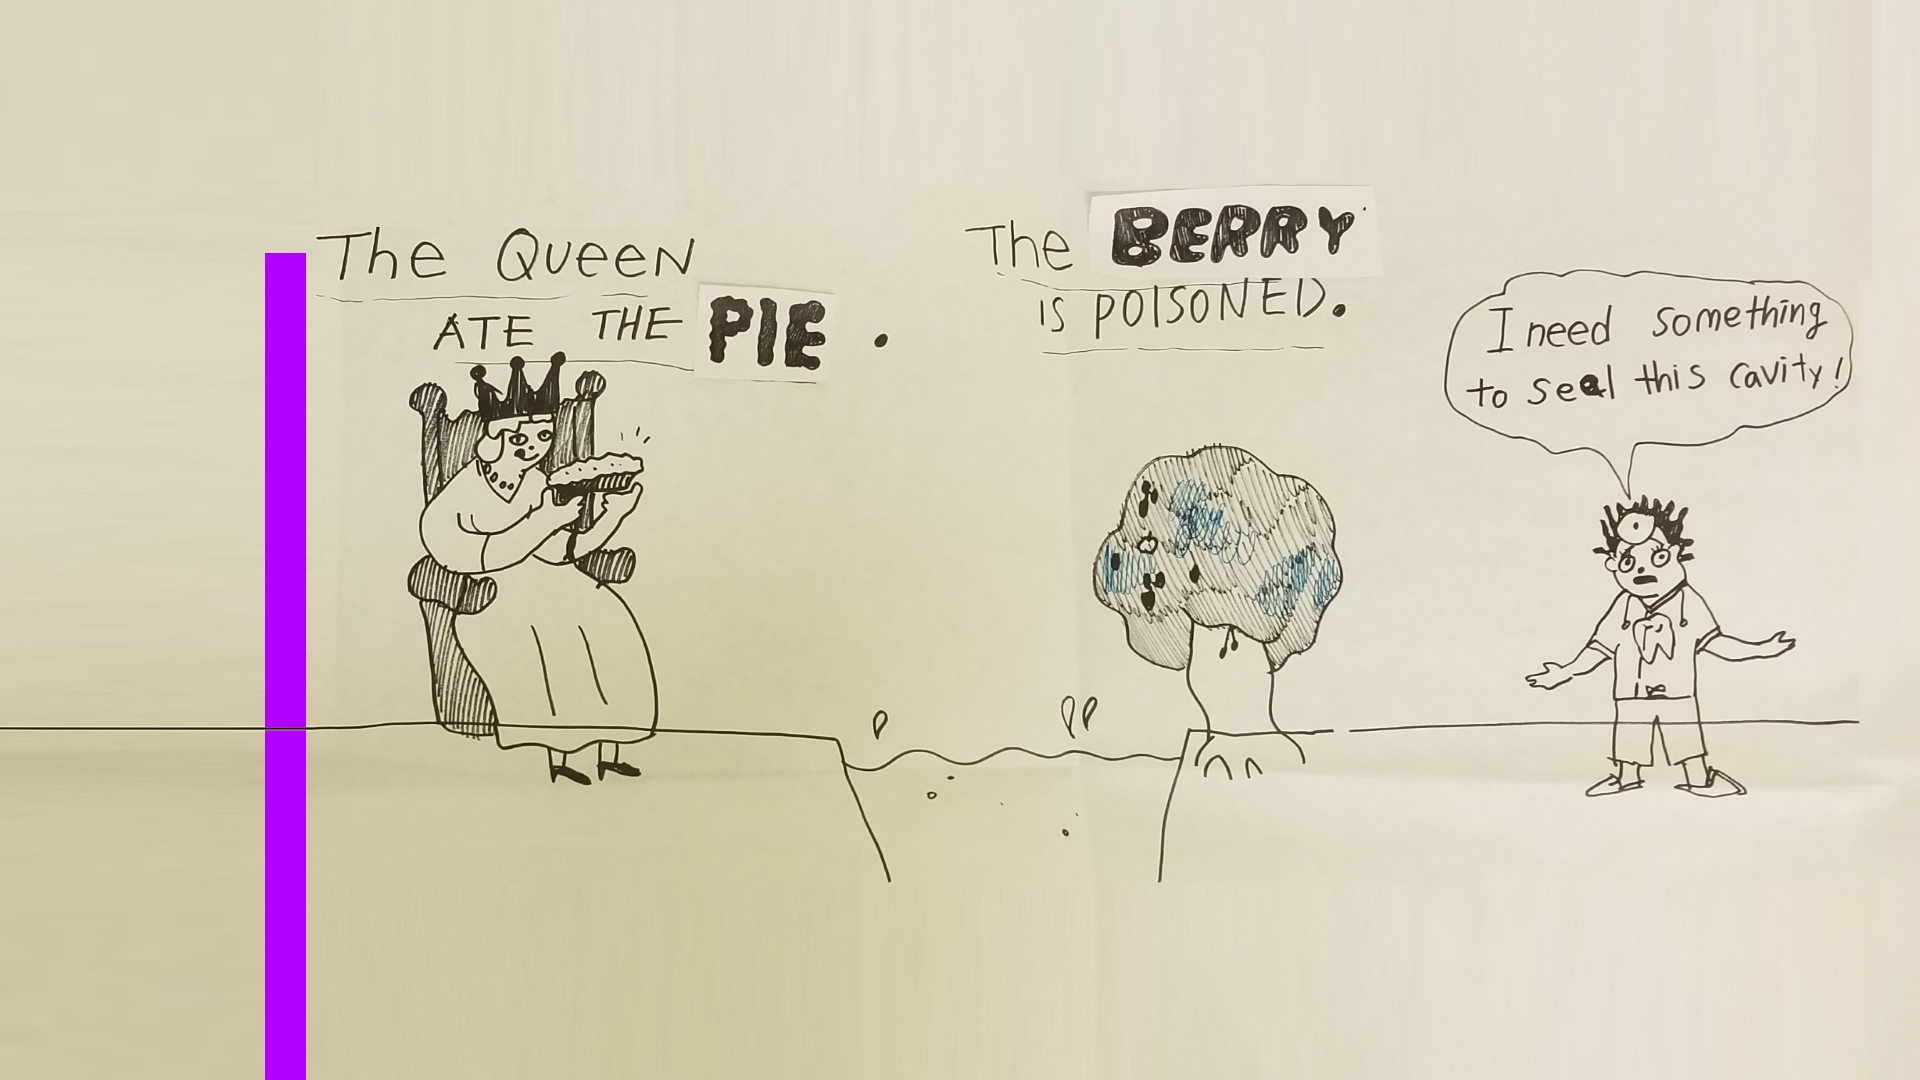 The Queen
ATE THE PIE.
The BERRY
IS POISONED.
I need something
to seal this cavity!